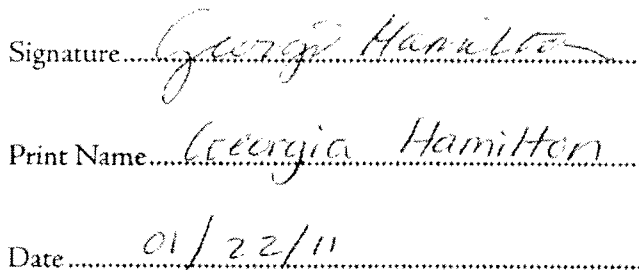 Signature Georgia Hamilton
Print Name Georgia Hamilton
Date 01/22/11